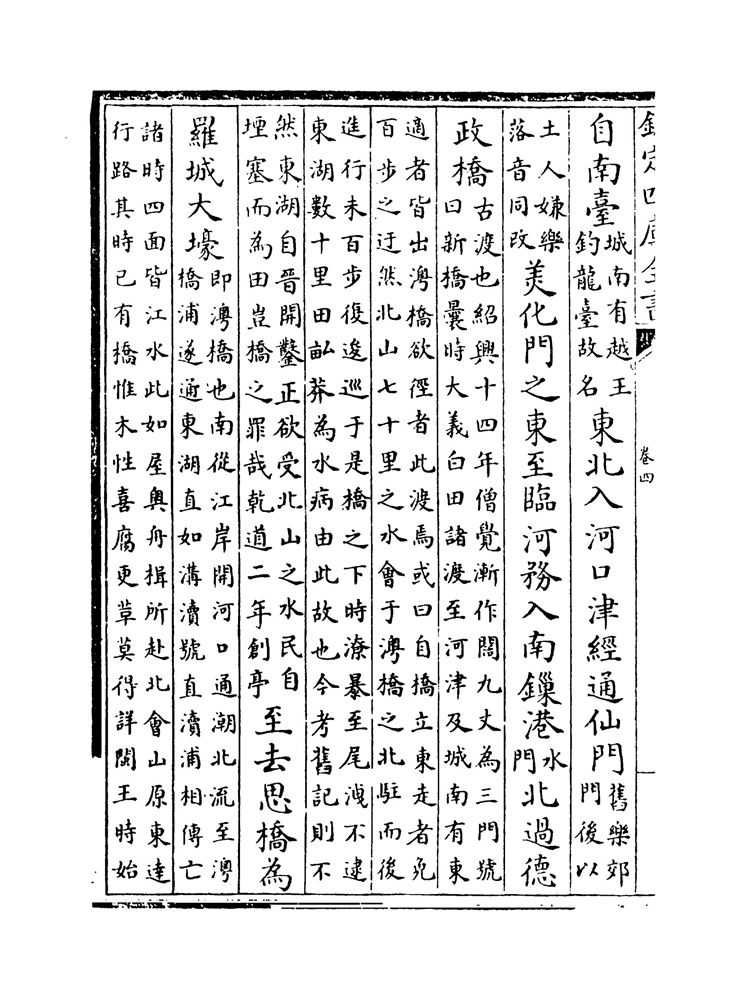 欽定四庫全書 卷四
自南臺城南有越王釣龍臺故名東北入河口津經通仙門舊樂郊門後以
土人嫌樂落音同改美化門之東至臨河務入南鏁港水門北過德
政橋古渡也紹興十四年僧覺漸作闊九丈為三門號曰新橋曩時大義白田諸渡至河津及城南有東
適者皆出澳橋欲徑者此渡焉或曰自橋立東走者免百步之迂然北山七十里之水會于澳橋之北駐而後
進行未百步復逡巡于是橋之下時潦暴至尾洩不逮東湖數十里田畝莽為水病由此故也今考舊記則不
然東湖自晉開鑿正欲受北山之水民自堙塞而為田豈橋之罪哉乾道二年創亭至去思橋為
羅城大壕即澳橋也南從江岸開河口通潮北流至澳橋浦遂通東湖直如溝瀆號直瀆浦相傳亡
諸時四面皆江水此如屋奧舟楫所赴北會山原東達行路其時已有橋惟木性喜腐更草莫得詳閩王時始